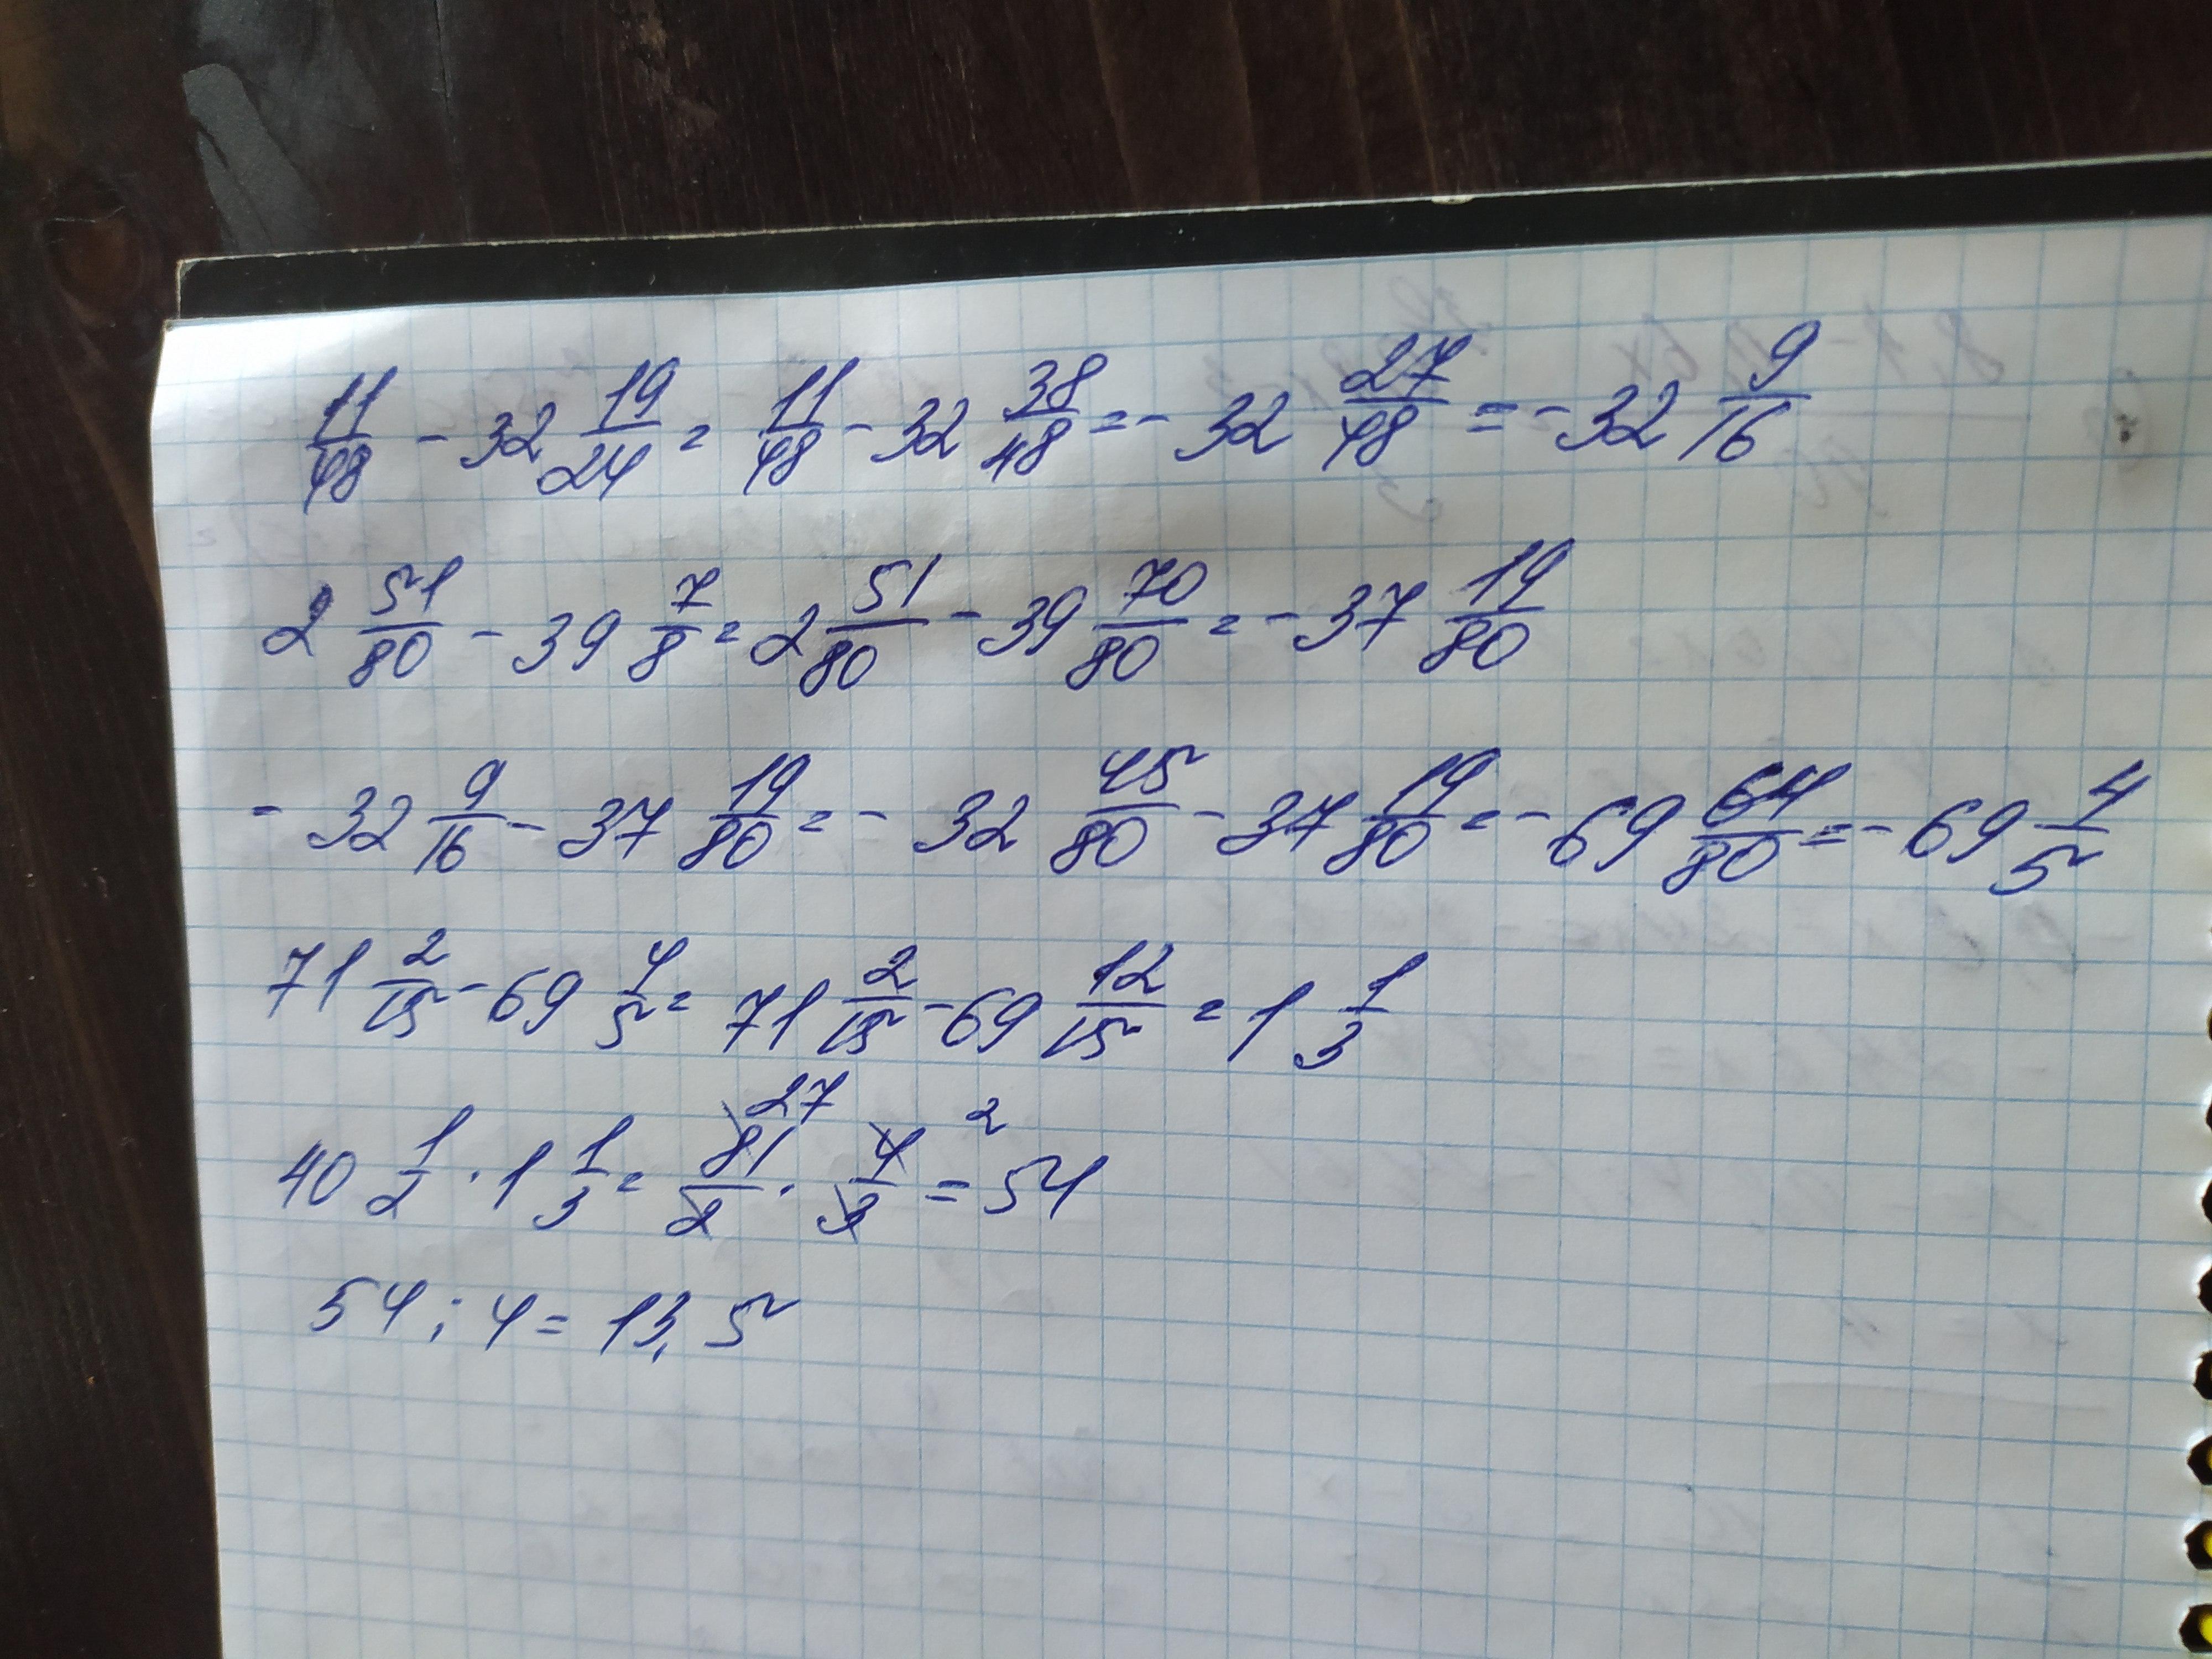 11/48 - 32 19/24 = 11/48 - 32 38/48 = - 32 27/48 = - 32 9/16
2 51/80 - 39 7/8 = 2 51/80 - 39 70/80 = - 37 19/80
- 32 9/16 - 37 19/80 = - 32 45/80 - 37 19/80 = - 69 64/80 = - 69 4/5
71 2/15 - 69 4/5 = 71 2/15 - 69 12/15 = 1 1/3
27 2
40 1/2 · 1 1/3 = 81/2 · 4/3 = 54
54 : 4 = 13,5